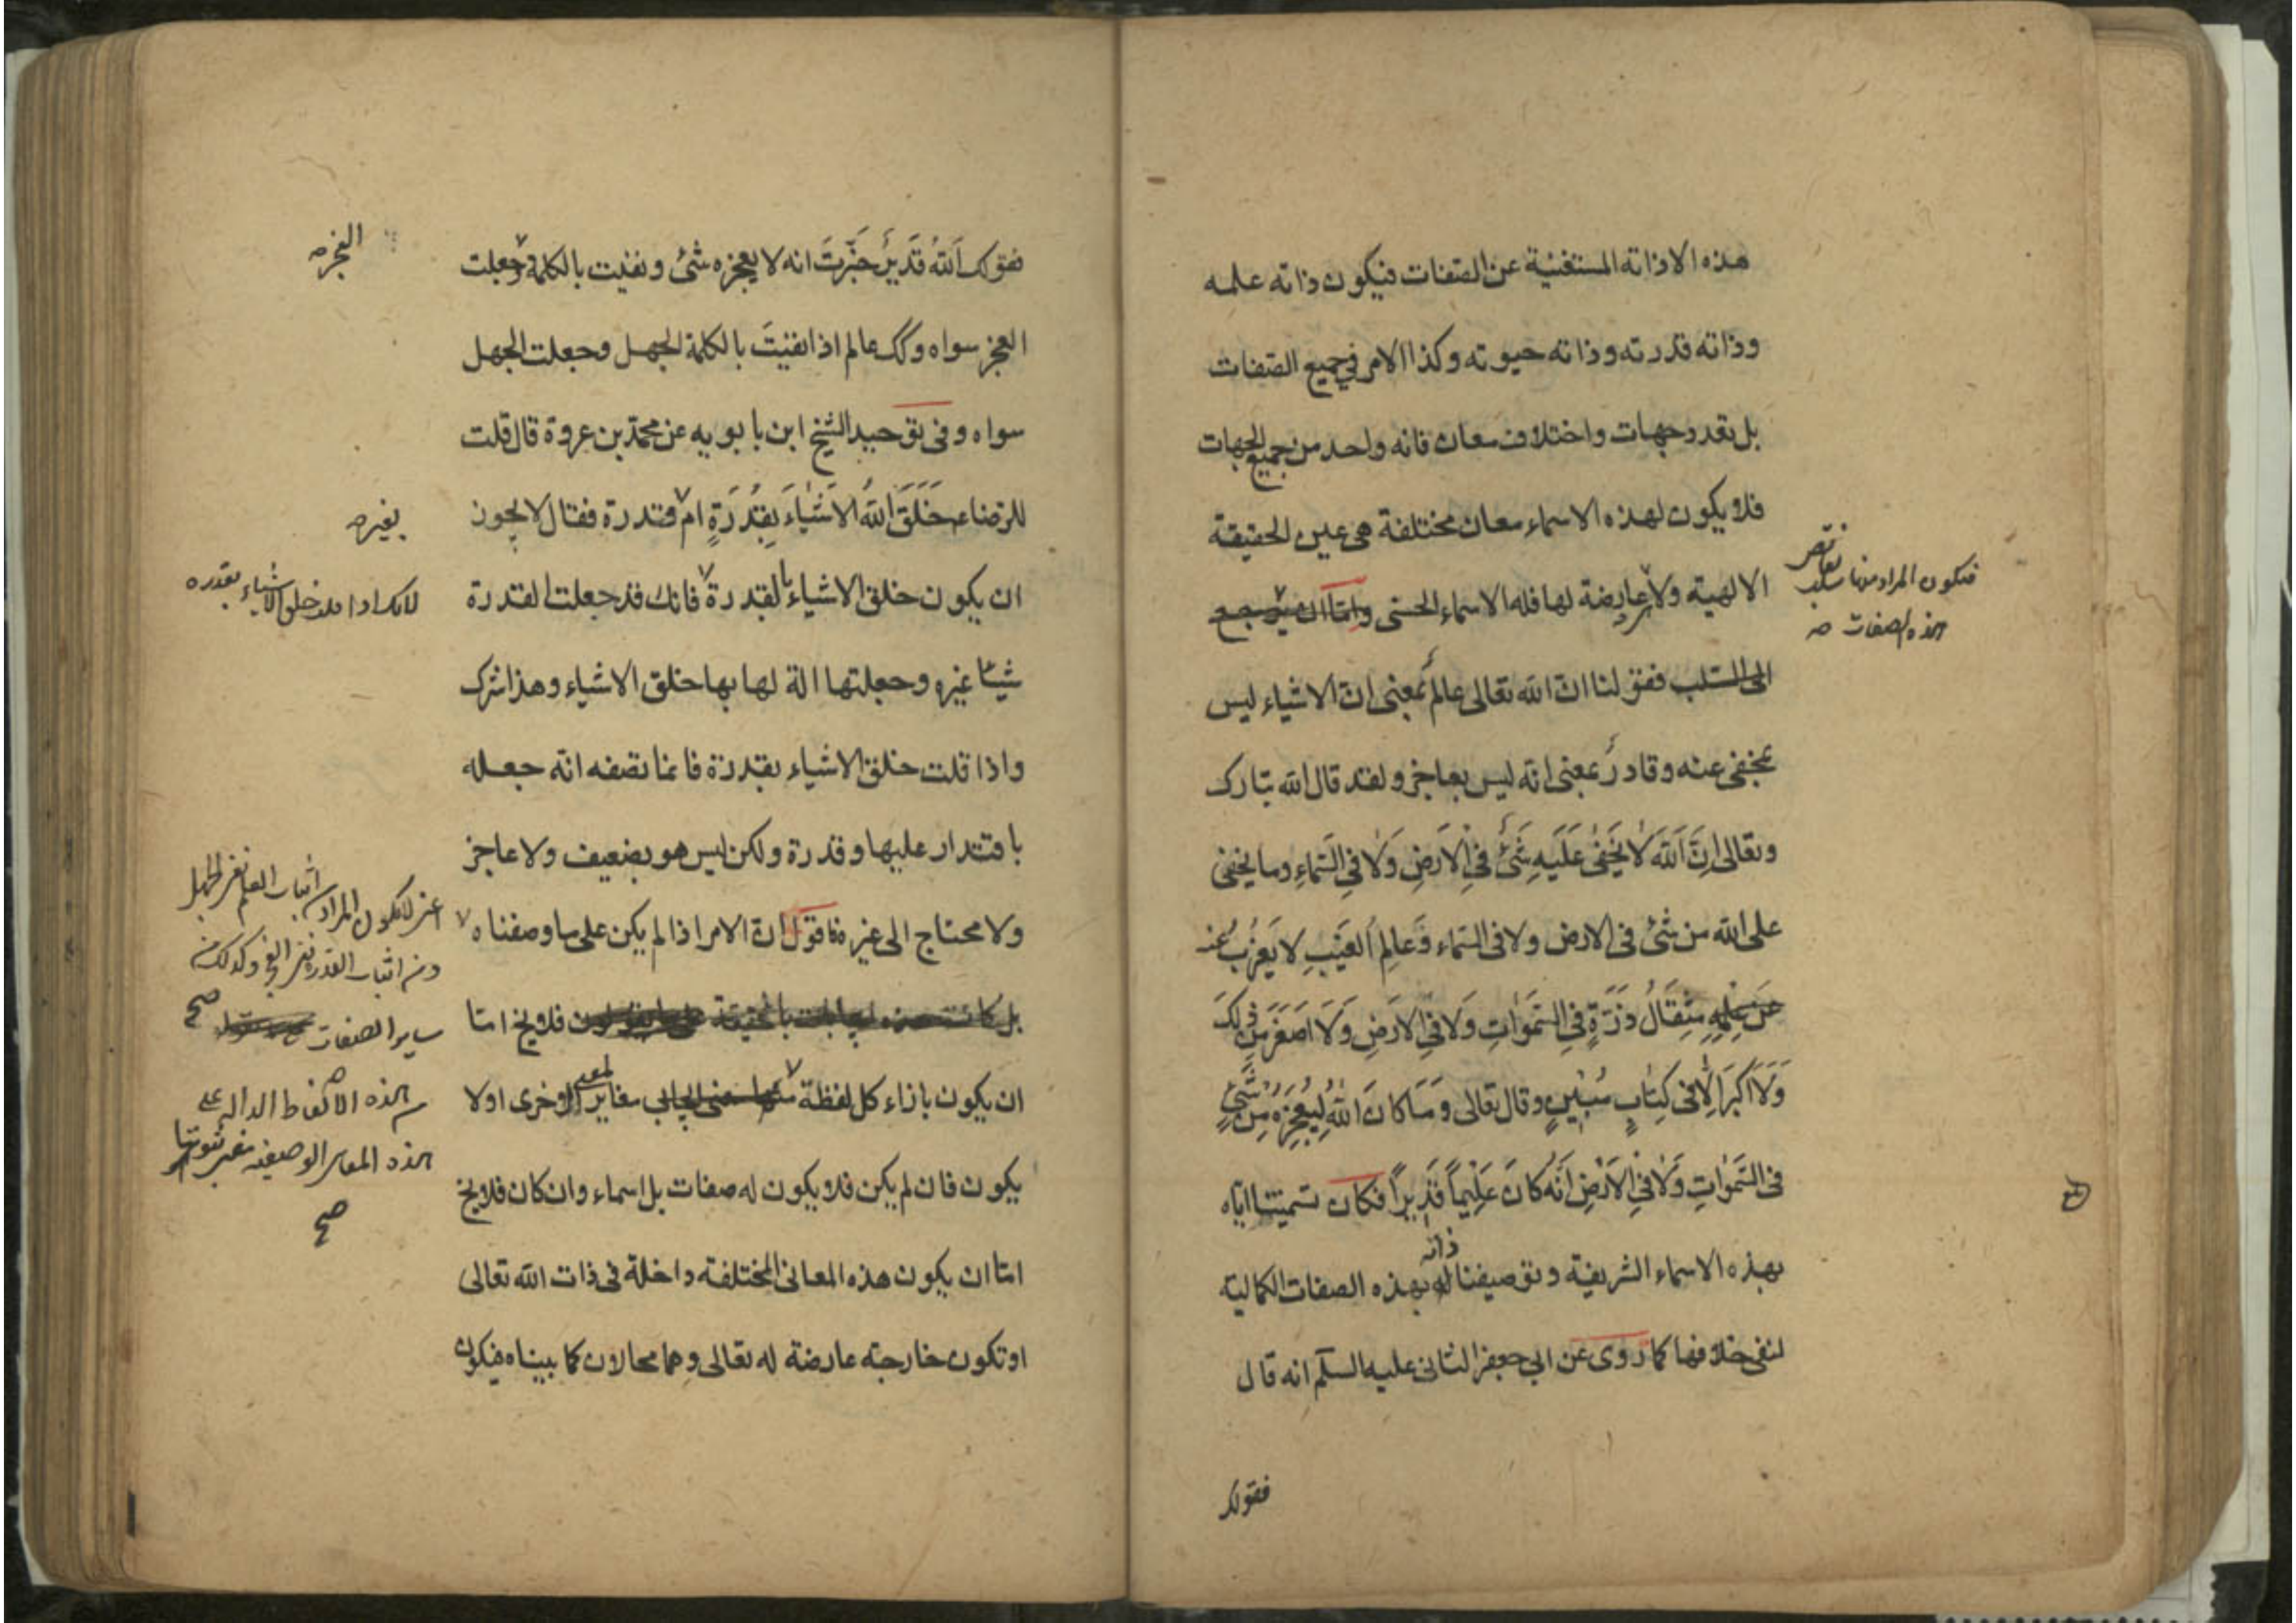 هذه الا ذاته المستغنية عن الصفات فيكون ذاته علمه
وذاته قدرته وذاته حيوته وكذا الامر في جميع الصفات
بل تعدد جهات واختلاف معان فانه واحد من جميع الجهات
فلا يكون لهذه الاسماء معان مختلفة هي عين الحقيقة
الالهية ولا عارضة لها فله الاسماء الحسنى واما ان يرجع
الى السلب فقولنا ان الله تعالى عالمٌ بمعنى ان الاشياء ليس
بمخفى عنه وقادرٌ بمعنى انه ليس بعاجز ولقد قال الله تبارك
وتعالى اِنَّ اَللّهَ لَا يَخْفىٰ عَلَيْهِ شَىْءٌ فىِ اْلاَرْضِ وَلَا فىِ السَّماءِ وما يخفى
على الله من شئ فى الارض ولا فى السماء وَعالِمِ اْلغَيْبِ لا يَعْزُبُ عنه
عَن عِلْمِهِ مِثْقَالُ ذَرَّةٍ فىِ السَّمَوٰاتِ وَلَا فىِ الارْضِ وَلَا اَصْغَرَ مِنْ ذٰلِكَ
وَلَا اَكْبَرَ اِلَّا فى كِتٰابٍ مُبِيْنٍ وقال تعالى وَمَا كانَ اللّٰهُ لِيُعْجِزَهُ مِنْ شَىْءٍ
فى السَّمٰوَاتِ وَلَا فىِ الاَرْضِ اِنَّهُ كَانَ عَلِيْماً قَدِيراً فكان تسميتنا اياه
بهذه الاسماء الشريفة وتوصيفنا له ذاته بهذه الصفات الكمالية
لنفى خلافها كما روى عن ابي جعفر الثانى عليه السلم انه قال
فقولك
فيكون المراد منها سلب نقايص
هذه الصفات صح
فقولك اَللّهُ قَديرٌ خَبَّرْتَ انه لا يعجزه شئ ونفيت بالكلمة وجعلت
العجز سواه وكك عالم اذا نفيتَ بالكلمة الجهل وجعلت الجهل
سواه وفى توحيد الشيخ ابن بابويه عن محمد بن عروة قال قلت
للرضا ع خَلَقَ اللّهُ الاَشْيٰاءَ بِقُدْرَةٍ ام قدرة فقال لا يجوز
ان يكون خلق الاشياء بالقدرة فانك قد جعلت القدرة
شيئا غيره وجعلتها الة لها بها خلق الاشياء وهذا شرك
واذا قلت خلق الاشياء بقدرة فانما تصفه انه جعله
باقتدار عليها وقدرة ولكن ليس هو بضعيف ولا عاجز
ولا محتاج الى غيره فاقول ان الامر اذا لم يكن على ما وصفناه
بل كانت هذه ايجابات بالحقيقة فلا يخ اما
ان يكون بازاء كل لفظة منها معنى ايجابى مغاير لمعنى الاخرى اولا
يكون فان لم يكن فلا يكون له صفات بل اسماء وان كان فلا يخ
اما ان يكون هذه المعانى المختلفة داخلة فى ذات الله تعالى
او تكون خارجته عارضة له تعالى وهما محالان كما بيناه فيكون
العجز صح
بغير صح
لانك اذا قلت خلق الاشياء بقدره
اعنى لا يكون المراد من اثبات العلم نفى الجهل
ومن اثبات القدرة نفى العجز وكذلك من
ساير الصفات صح
من هذه الالفاظ الداله على
هذه المعانى الوصفيه ثبوتها
صح